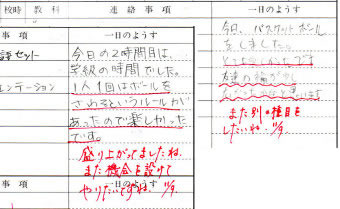 校時 教科 連絡事項
事項 一日のようす
セット
今日の2時間目は、
学級の時間でした。
1人1回はボールを
さわるというルールが
あったので楽しかった
です。
盛り上がってましたね。
また機会を設けて
やりたいですね。
事項 一日のようす
一日のようす
今日、バスケットボール
をしました。
とても楽しかったです
また別の種目を
したいね。